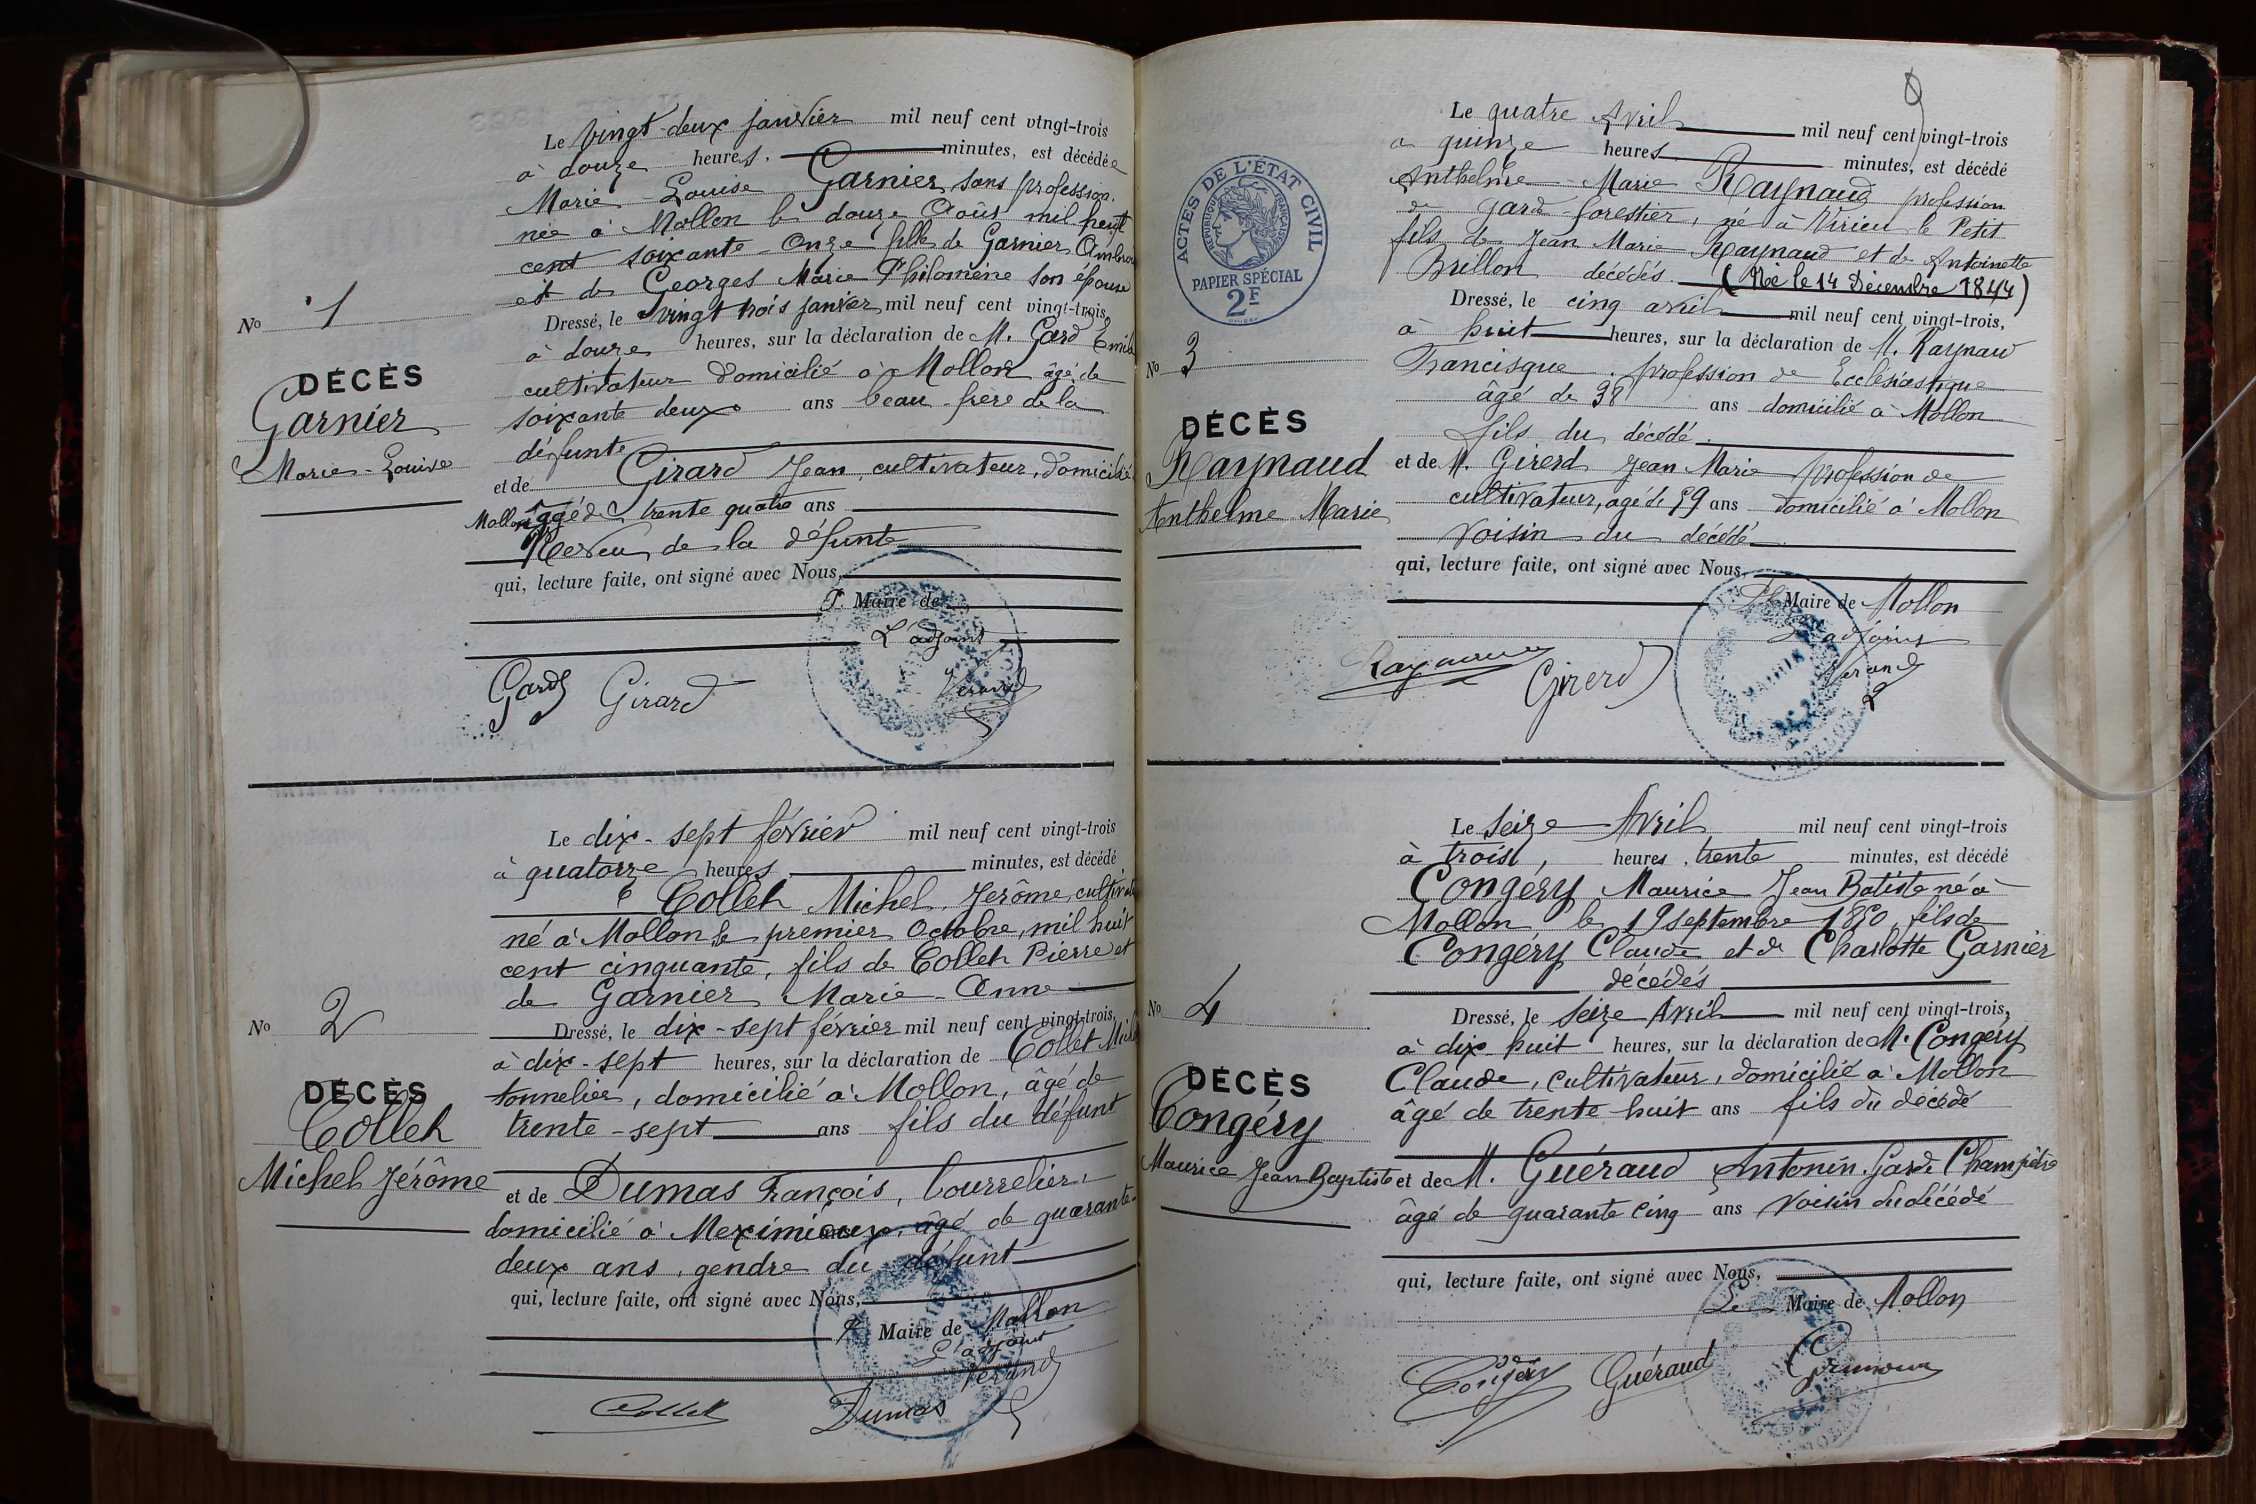 Le vingt-deux janvier mil neuf cent vingt-trois
à douze heures. minutes, est décédée
Marie Louise Garnier sans profession.
née à Mollon le douze Août mil huit
cent soixante-onze fille de Garnier
et de Georges Marie Philomène son épouse
No 1
Dressé, le vingt trois janvier mil neuf cent vingt-trois,
à douze heures, sur la déclaration de M. Gard Emile
DÉCÈS
Garnier
Marie-Louise
cultivateur domicilié à Mollon âgé de
soixante deux ans beau-frère de la
défunte
et de Girard Jean, cultivateur, domicilié
Mollon âgé de trente quatre ans
Neveu de la défunte
qui, lecture faite, ont signé avec Nous,
P. Maire de
L'adjoint
Gard Girard Verand
Le dix-sept février mil neuf cent vingt-trois
à quatorze heures minutes, est décédé
Collet Michel, Jerôme, cultivat
né à Mollon le premier Octobre, mil huit
cent cinquante, fils de Collet Pierre et
de Garnier Marie-Anne
No 2
Dressé, le dix-sept février mil neuf cent vingt-trois,
à dix-sept heures, sur la déclaration de Collet
DÉCÈS
Collet
Michel Jérôme
tonnelier, domicilié à Mollon, âgé de
trente-sept ans fils du défunt
et de Dumas François, bourrelier,
domicilié à Meximieux, âgé de quarante-
deux ans, gendre du défunt
qui, lecture faite, ont signé avec Nous,
P. Maire de Mollon
L'adjoint
Verand
Collet Dumas
ACTES DE L'ÉTAT CIVIL
RÉPUBLIQUE FRANÇAISE
PAPIER SPÉCIAL
2F
Le quatre Avril mil neuf cent vingt-trois
à quinze heures minutes, est décédé
Anthelme-Marie Raynaud profession
de garde forestier, né à Virieu le Petit
fils de Jean Marie Raynaud et de Antoinette
Brillon décédés. (Né le 14 Décembre 1844)
No 3
Dressé, le cinq avril mil neuf cent vingt-trois,
à huit heures, sur la déclaration de M. Raynaud
DÉCÈS
Raynaud
Anthelme Marie
Francisque. profession de Ecclésiastique
âgé de 38 ans domicilié à Mollon
fils du décédé.
et de M. Girerd Jean Marie profession de
cultivateur, âgé de 59 ans domicilié à Mollon
Voisin du décédé
qui, lecture faite, ont signé avec Nous,
P. le Maire de Mollon
L'adjoint
Raynaud Girerd Verand
Le seize Avril mil neuf cent vingt-trois
à trois, heures trente minutes, est décédé
Congéry Maurice Jean Batiste né à
Mollon le 19 septembre 1850, fils de
Congéry Claude et de Charlotte Garnier
décédés
No 4
Dressé, le seize Avril mil neuf cent vingt-trois,
à dix-huit heures, sur la déclaration de M. Congéry
DÉCÈS
Congéry
Maurice Jean Baptiste
Claude, cultivateur, domicilié à Mollon
âgé de trente-huit ans fils du décédé
et de M. Guéraud Antonin. Garde Champêtre
âgé de quarante cinq ans Voisin du décédé
qui, lecture faite, ont signé avec Nous,
Le Maire de Mollon
Congéry Guéraud